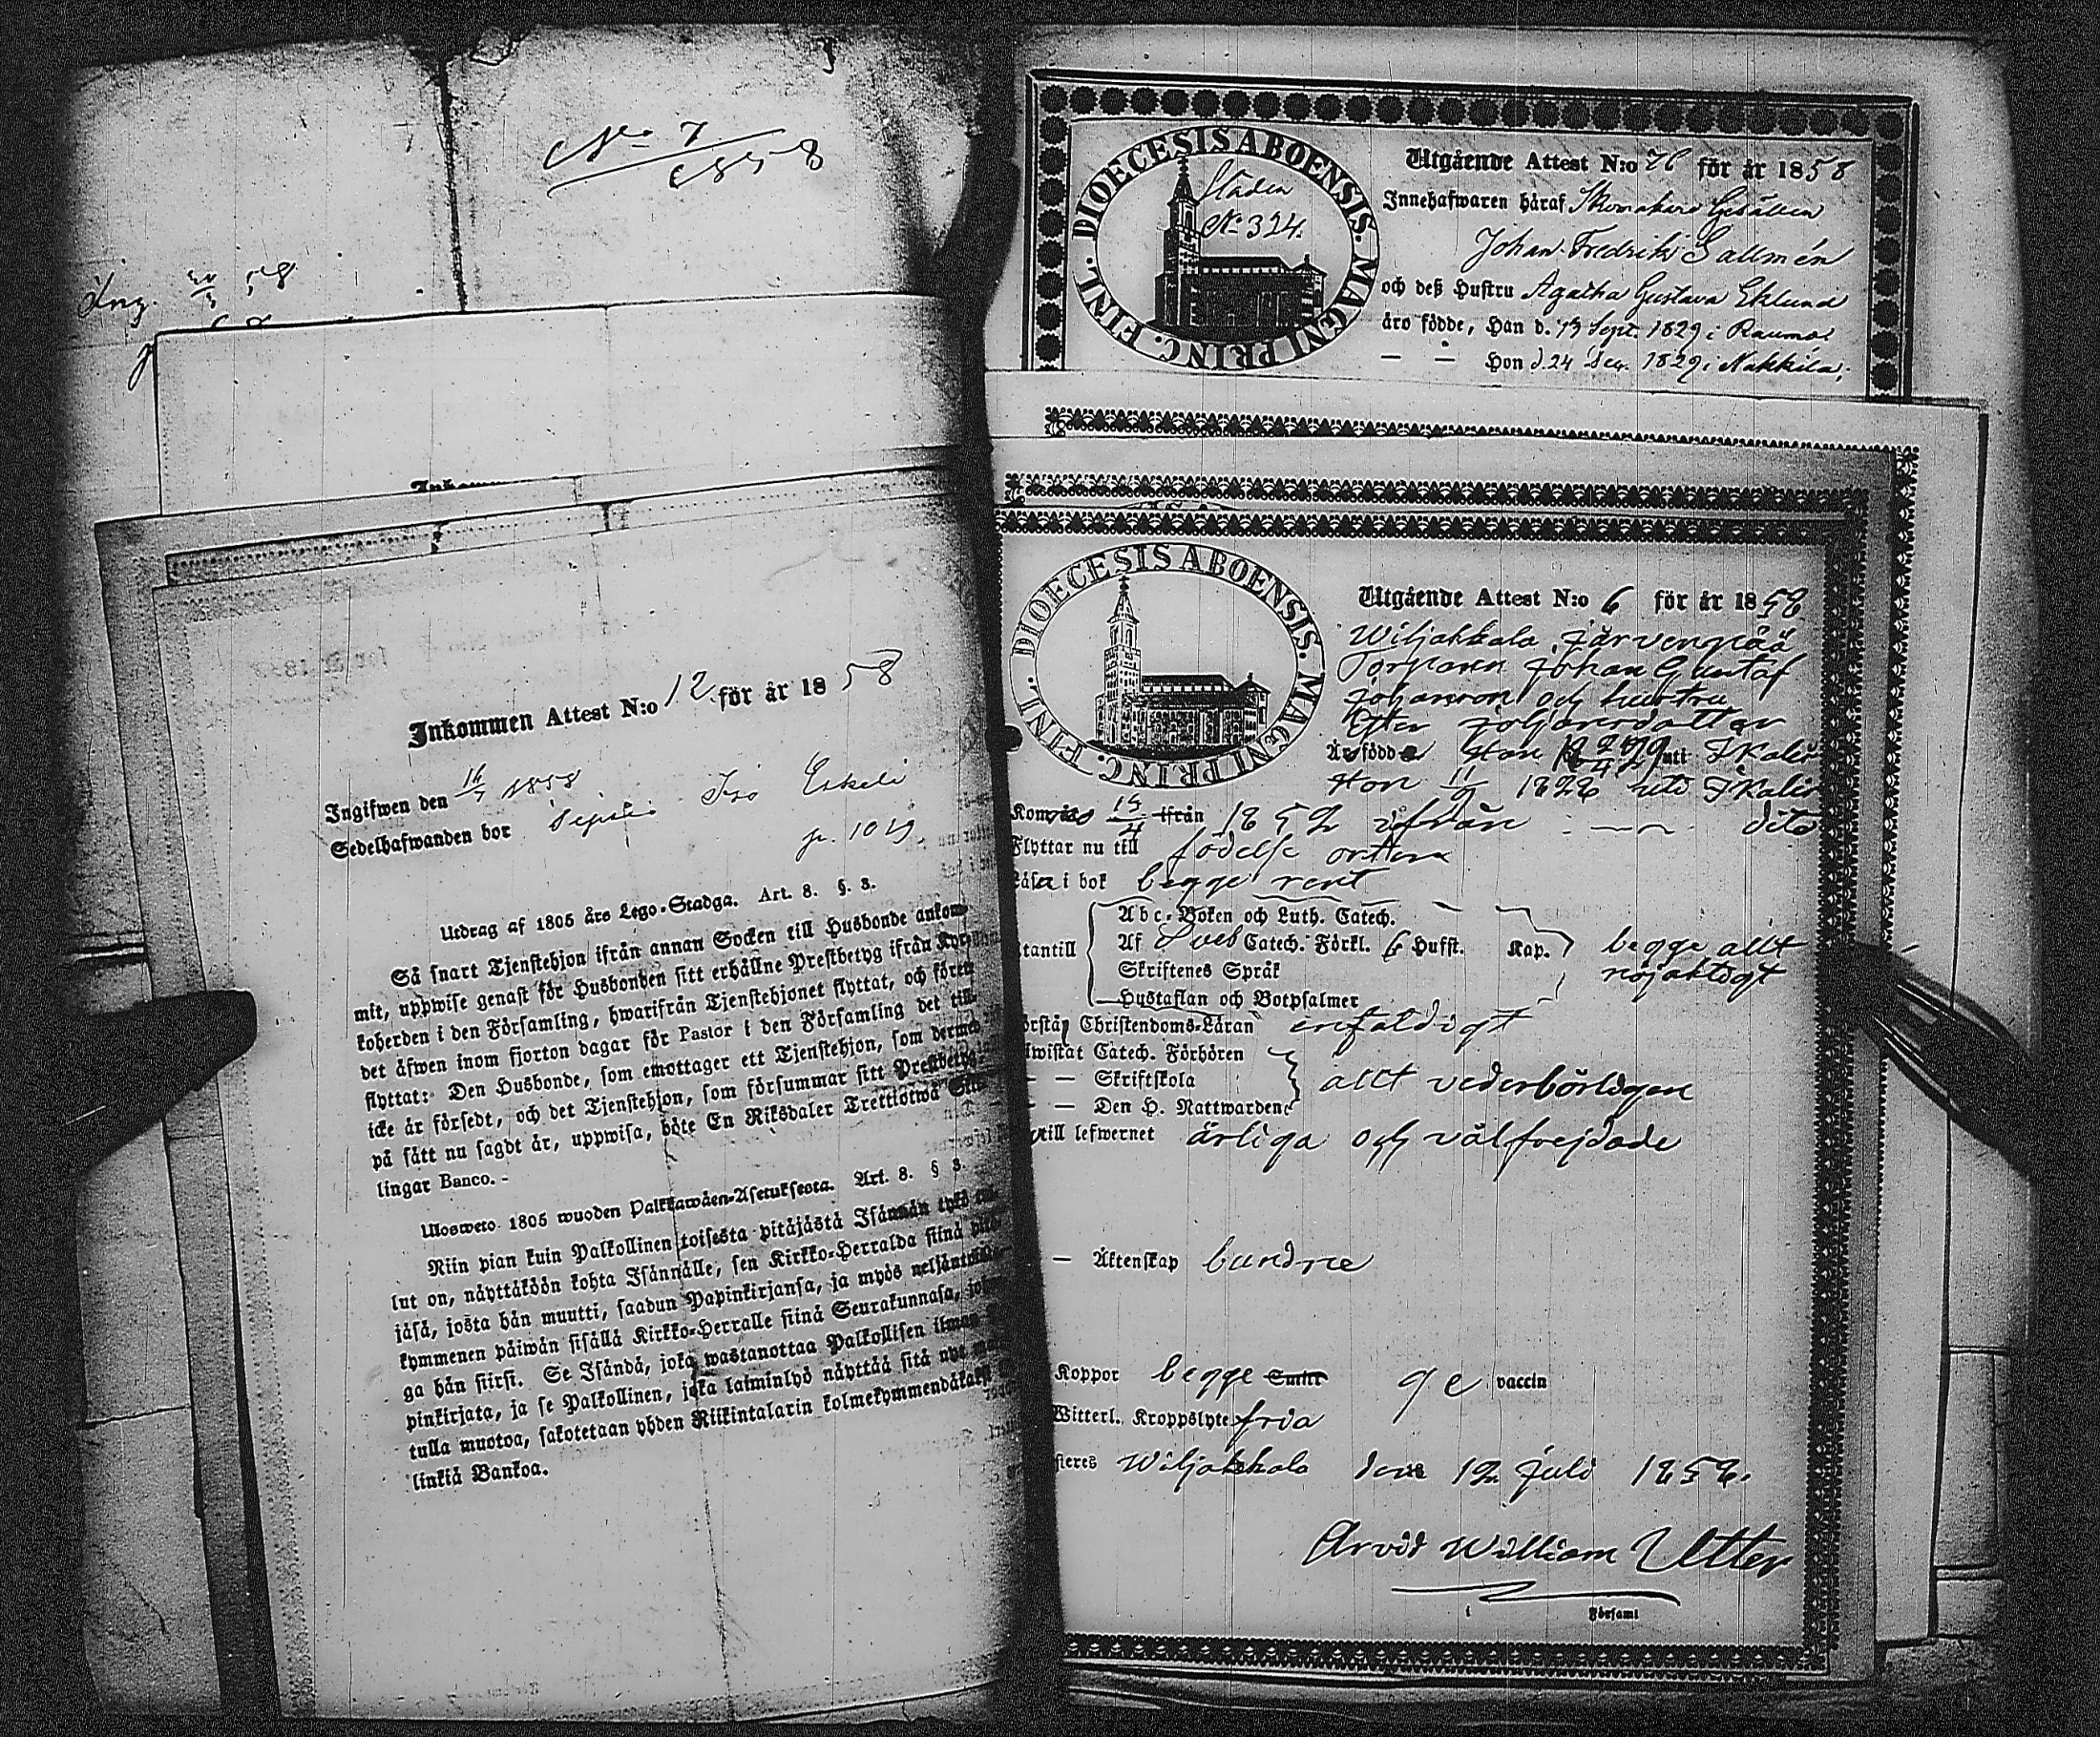 No 7
1858
Ing. 58
Inkommen Attest N:o 12 för år 1858
Ingifwen den 16/7 1858
Sedelhafwanden bor Iso Erkeli
p. 1019
Utdrag af 1805 års Lego-Stadga. Art. 8. §. 3.
Så snart Tjenstehjon ifrån annan Socken till Husbonde ankom-
mit, uppwise genast för Husbonden sitt erhållne Prestbetyg ifrån
koherden i den Församling, hwarifrån Tjenstehjonet flyttat, och förete
det äfwen inom fjorton dagar för Pastor i den Församling det till-
flyttat: Den Husbonde, som emottager ett Tjenstehjon, som dermed
icke är försedt, och det Tjenstehjon, som försummar sitt Prestbetyg,
på sätt nu sagdt är, uppwisa, böte En Riksdaler Trettiotwå Skil-
lingar Banco. -
Ulosweto 1805 wuoden Palkkawäen-Asetuksesta. Art. 8. § 3.
Niin pian kuin Palkollinen toisesta pitäjästä Isännän tykö tul-
lut on, näyttäköön kohta Isännälle, sen Kirkko-Herralda siinä pitä-
jäsä, josta hän muutti, saadun Papinkirjansa, ja myös neljäntoista-
kymmenen päiwän sisällä Kirkko-Herralle siinä Seurakunnasa, johon-
ga hän siirsi. Se Isändä, joka wastanottaa Palkollisen ilman
pinkirjata, ja se Palkollinen, joka laiminlyö näyttää sitä nyt
tulla muotoa, sakotetaan yhden Riikintalarin kolmekymmendäkaksi
linkiä Bankoa.
DIOECESIS ABOENSIS. MAGNI PRINC. FINL.
Staden
No 324.
Utgående Attest N:o 76 för år 1858
Innehafwaren häraf Skomakare Gesällen
Johan Fredrik Sallmén
och deß Hustru Agatha Gustava Eklund
äro födde, Han d. 13 Sept. 1829 i Raumo.
— — Hon d. 24 Dec. 1829 i Nakkila;
DIOECESIS ABOENSIS. MAGNI PRINC. FINL.
Utgående Attest N:o 6 för år 1858
Wiljakkala, Järvenpää
Torparen Johan Gustaf
Johansson och hustru
Ester Johansdotter
Är född Han uti Ikalis
Hon 11/9 1828 uti Ikalis
Kom 15/4 ifrån 1858 ifrån dito
Flyttar nu till födelse orten
Läser i bok begge rent
Abc-Boken och Luth. Catech.
utantill Af Sveb Catech. Förkl. 6 Hufst. Kap. begge allt
Skriftenes Språk nöjaktigt
Hustaflan och Botpsalmer
Förstå Christendoms-Läran enfaldigt
Bewistat Catech. Förhören
— — Skriftskola allt vederbörligen
— — Den H. Nattwarden
till lefwernet ärliga och välfrejdade
— Äktenskap bundne
Koppor begge ge vaccin
Witterl. Kroppslyte fria
Wiljakkala den 12 Juli 1858.
Arvid William Utter
i Församl